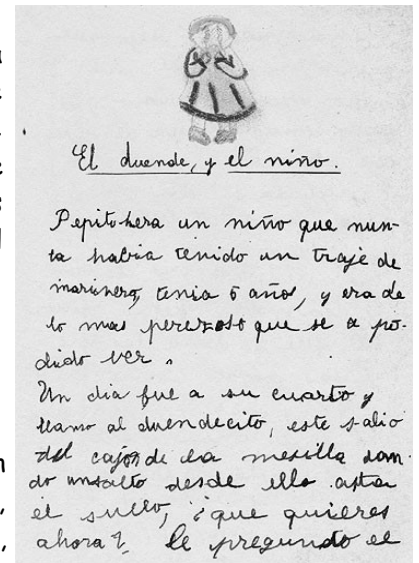 El duende, y el niño.
Pepito hera un niño que nun-
ta habia tenido un traje de
marinero, tenia 6 años, y era de
lo mas perezoso que se a po-
dido ver.
Un dia fue a su cuarto y
llamo al duendecito, este salio
del cajon de la mesilla dan-
do un salto desde ella asta
el suelo, ¿que quieres
ahora?, le pregundo el